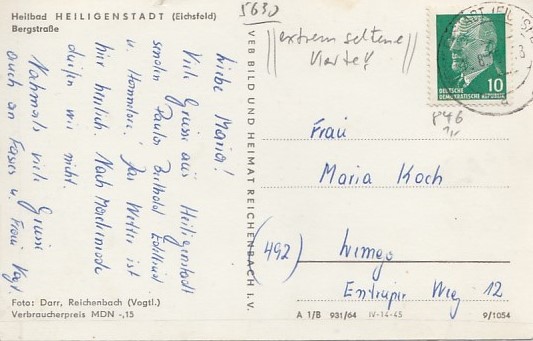 Heilbad HEILIGENSTADT (Eichsfeld)
Bergstraße
5630
||extrem seltene||
Karte!
DEUTSCHE
DEMOKRATISCHE REPUBLIK
10
846
VEB BILD UND HEIMAT REICHENBACH I. V.
Liebe Maria!
Viele Grüße aus Heiligenstadt
Paula Berthold
u. Das Wetter ist
hier herrlich. Nach
dürfen wir nicht.
Nochmals viele Grüße
auch an u. Frau Vogt
Frau
Maria Koch
(492) Lemgo
Entruper Weg 12
Foto: Darr, Reichenbach (Vogtl.)
Verbraucherpreis MDN -,15
A 1/B 931/64 IV-14-45 9/1054